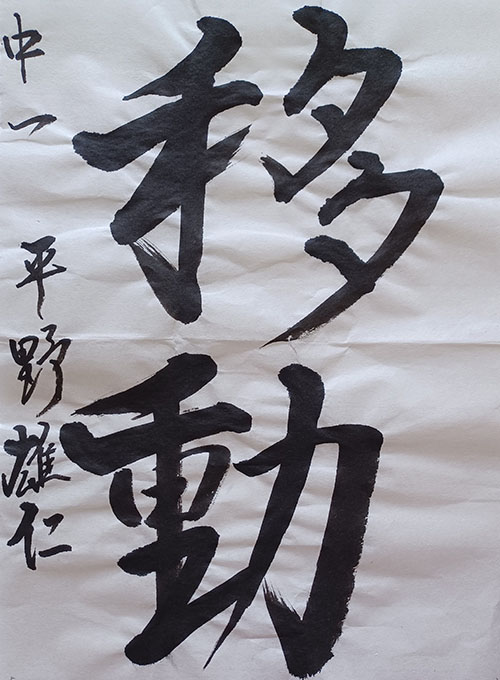 移動
中一 平野雄仁